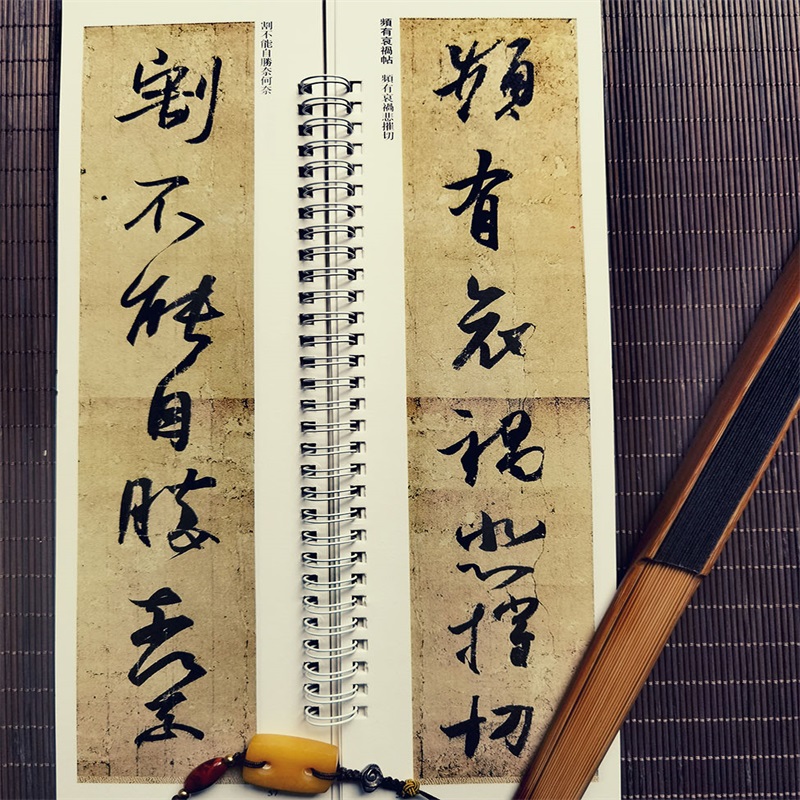 頻有哀禍悲摧切
頻有哀禍帖 頻有哀禍悲摧切
割不能自勝奈何奈
割不能自勝奈何奈